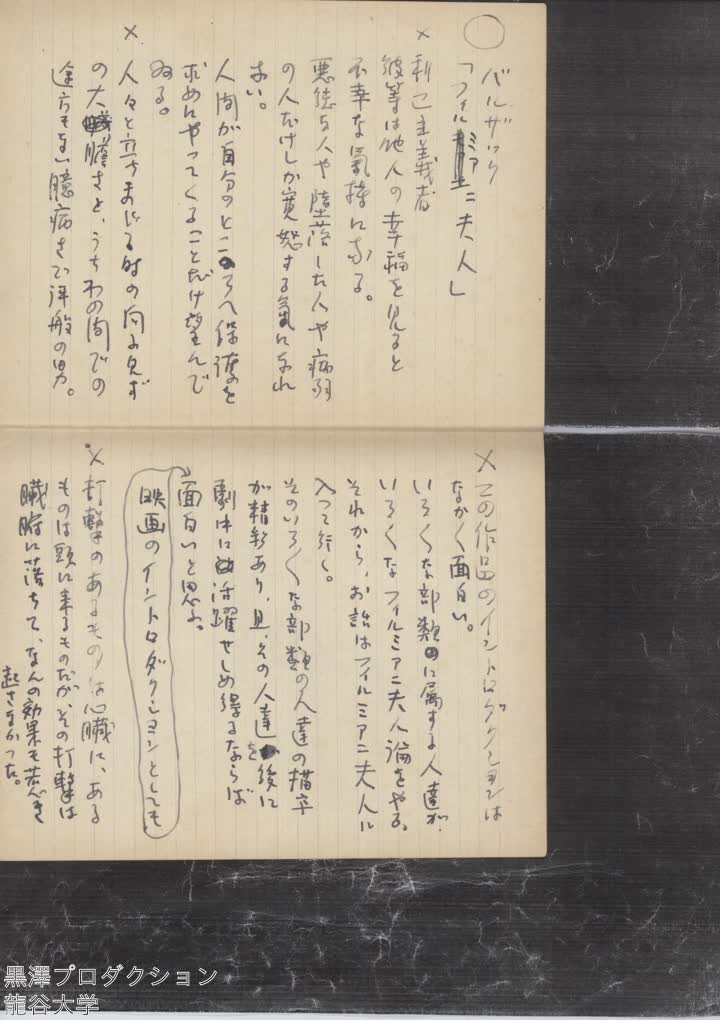 バルザック
「フィルミアニ夫人」
× 利己主義者
彼等は他人の幸福を見ると
不幸な氣持になる。
悪徳な人や墮落した人や病弱
の人だけしか寛恕する氣になれ
ない。
人間が自分のところへ保護を
求めにやってくることだけ望んで
ゐる。
× 人々と立ちまじる時の向ふ見ず
の大膽さと、うちわの間での
途方もない臆病さで評般の男。
× この作品のイントロダクションは
なかなか面白い。
いろくな部類に属する人達が、
いろくなフィルミアニ夫人論をやる。
それから、お話はフィルミアニ夫人に
入って行く。
そのいろくな部類の人達の描写
が精彩あり、且、その人達を後に
劇中に活躍せしめ得るならば
面白いと思ふ。
映画のイントロダクションとしても
× 打撃のあるものは心臓に、ある
ものは頭に来るものだが、その打撃は
臓腑に落ちて、なんの効果も惹き
起さなかった。
黒澤プロダクション
龍谷大学